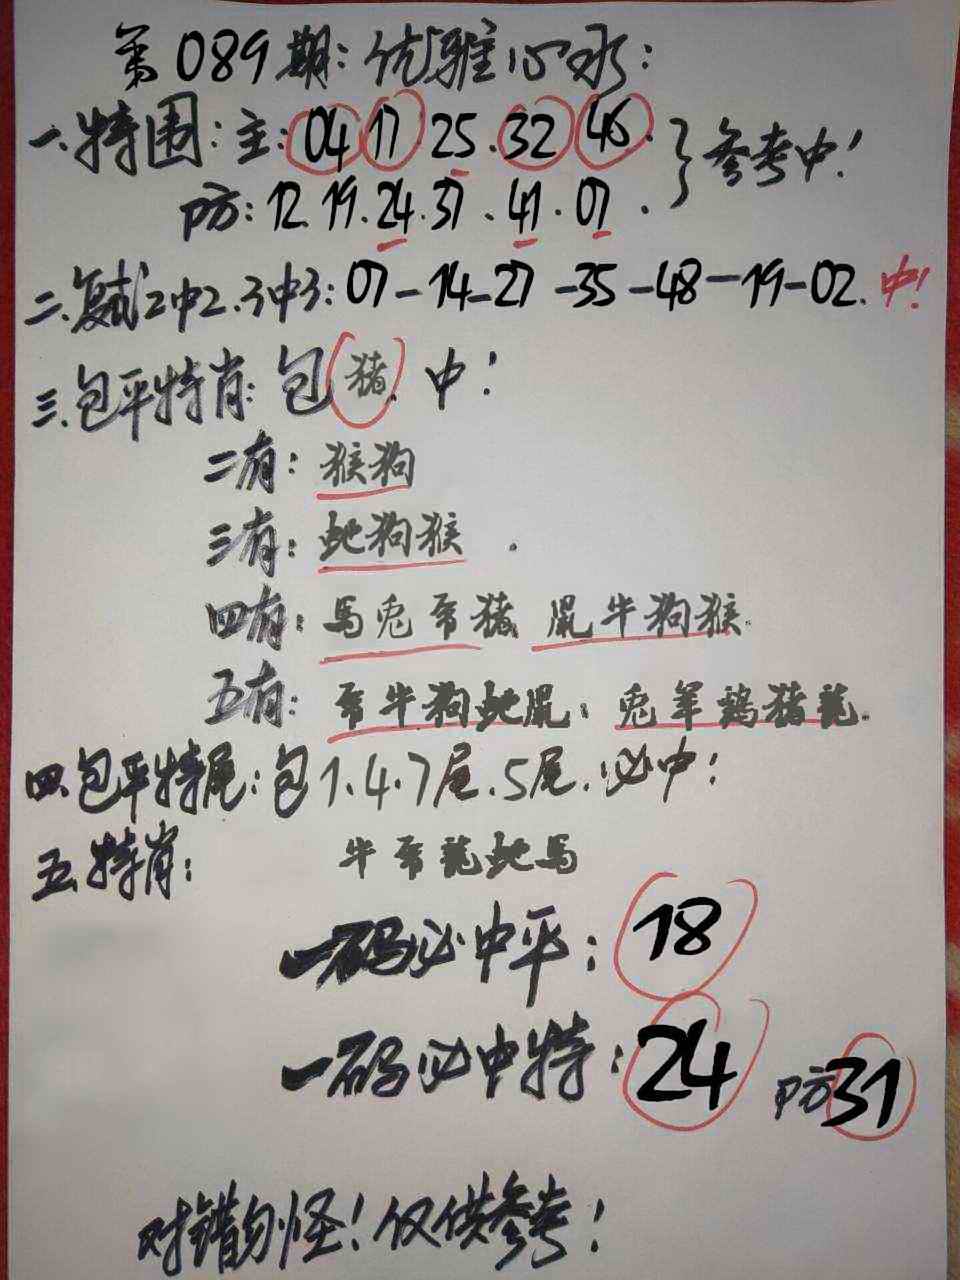 第089期：优雅心水：
一.特围：主：04 17.25.32 46. 参考中！
防：12.19.24.37.41.07.
二.复式2中2.3中3：07-14-27-35-48-19-02.中！
三.包平特肖：包猪.中！
二有：猴狗
三有：蛇狗猴.
四有：馬兔帝猪 鼠牛狗猴.
五有：帝牛狗蛇鼠：兔羊鷄猪龍.
四.包平特尾：包1.4.7尾.5尾.必中！
五.特肖： 牛帝龍蛇馬
一码必中平：18
一码必中特：24 防31
对错勿怪！仅供参考！